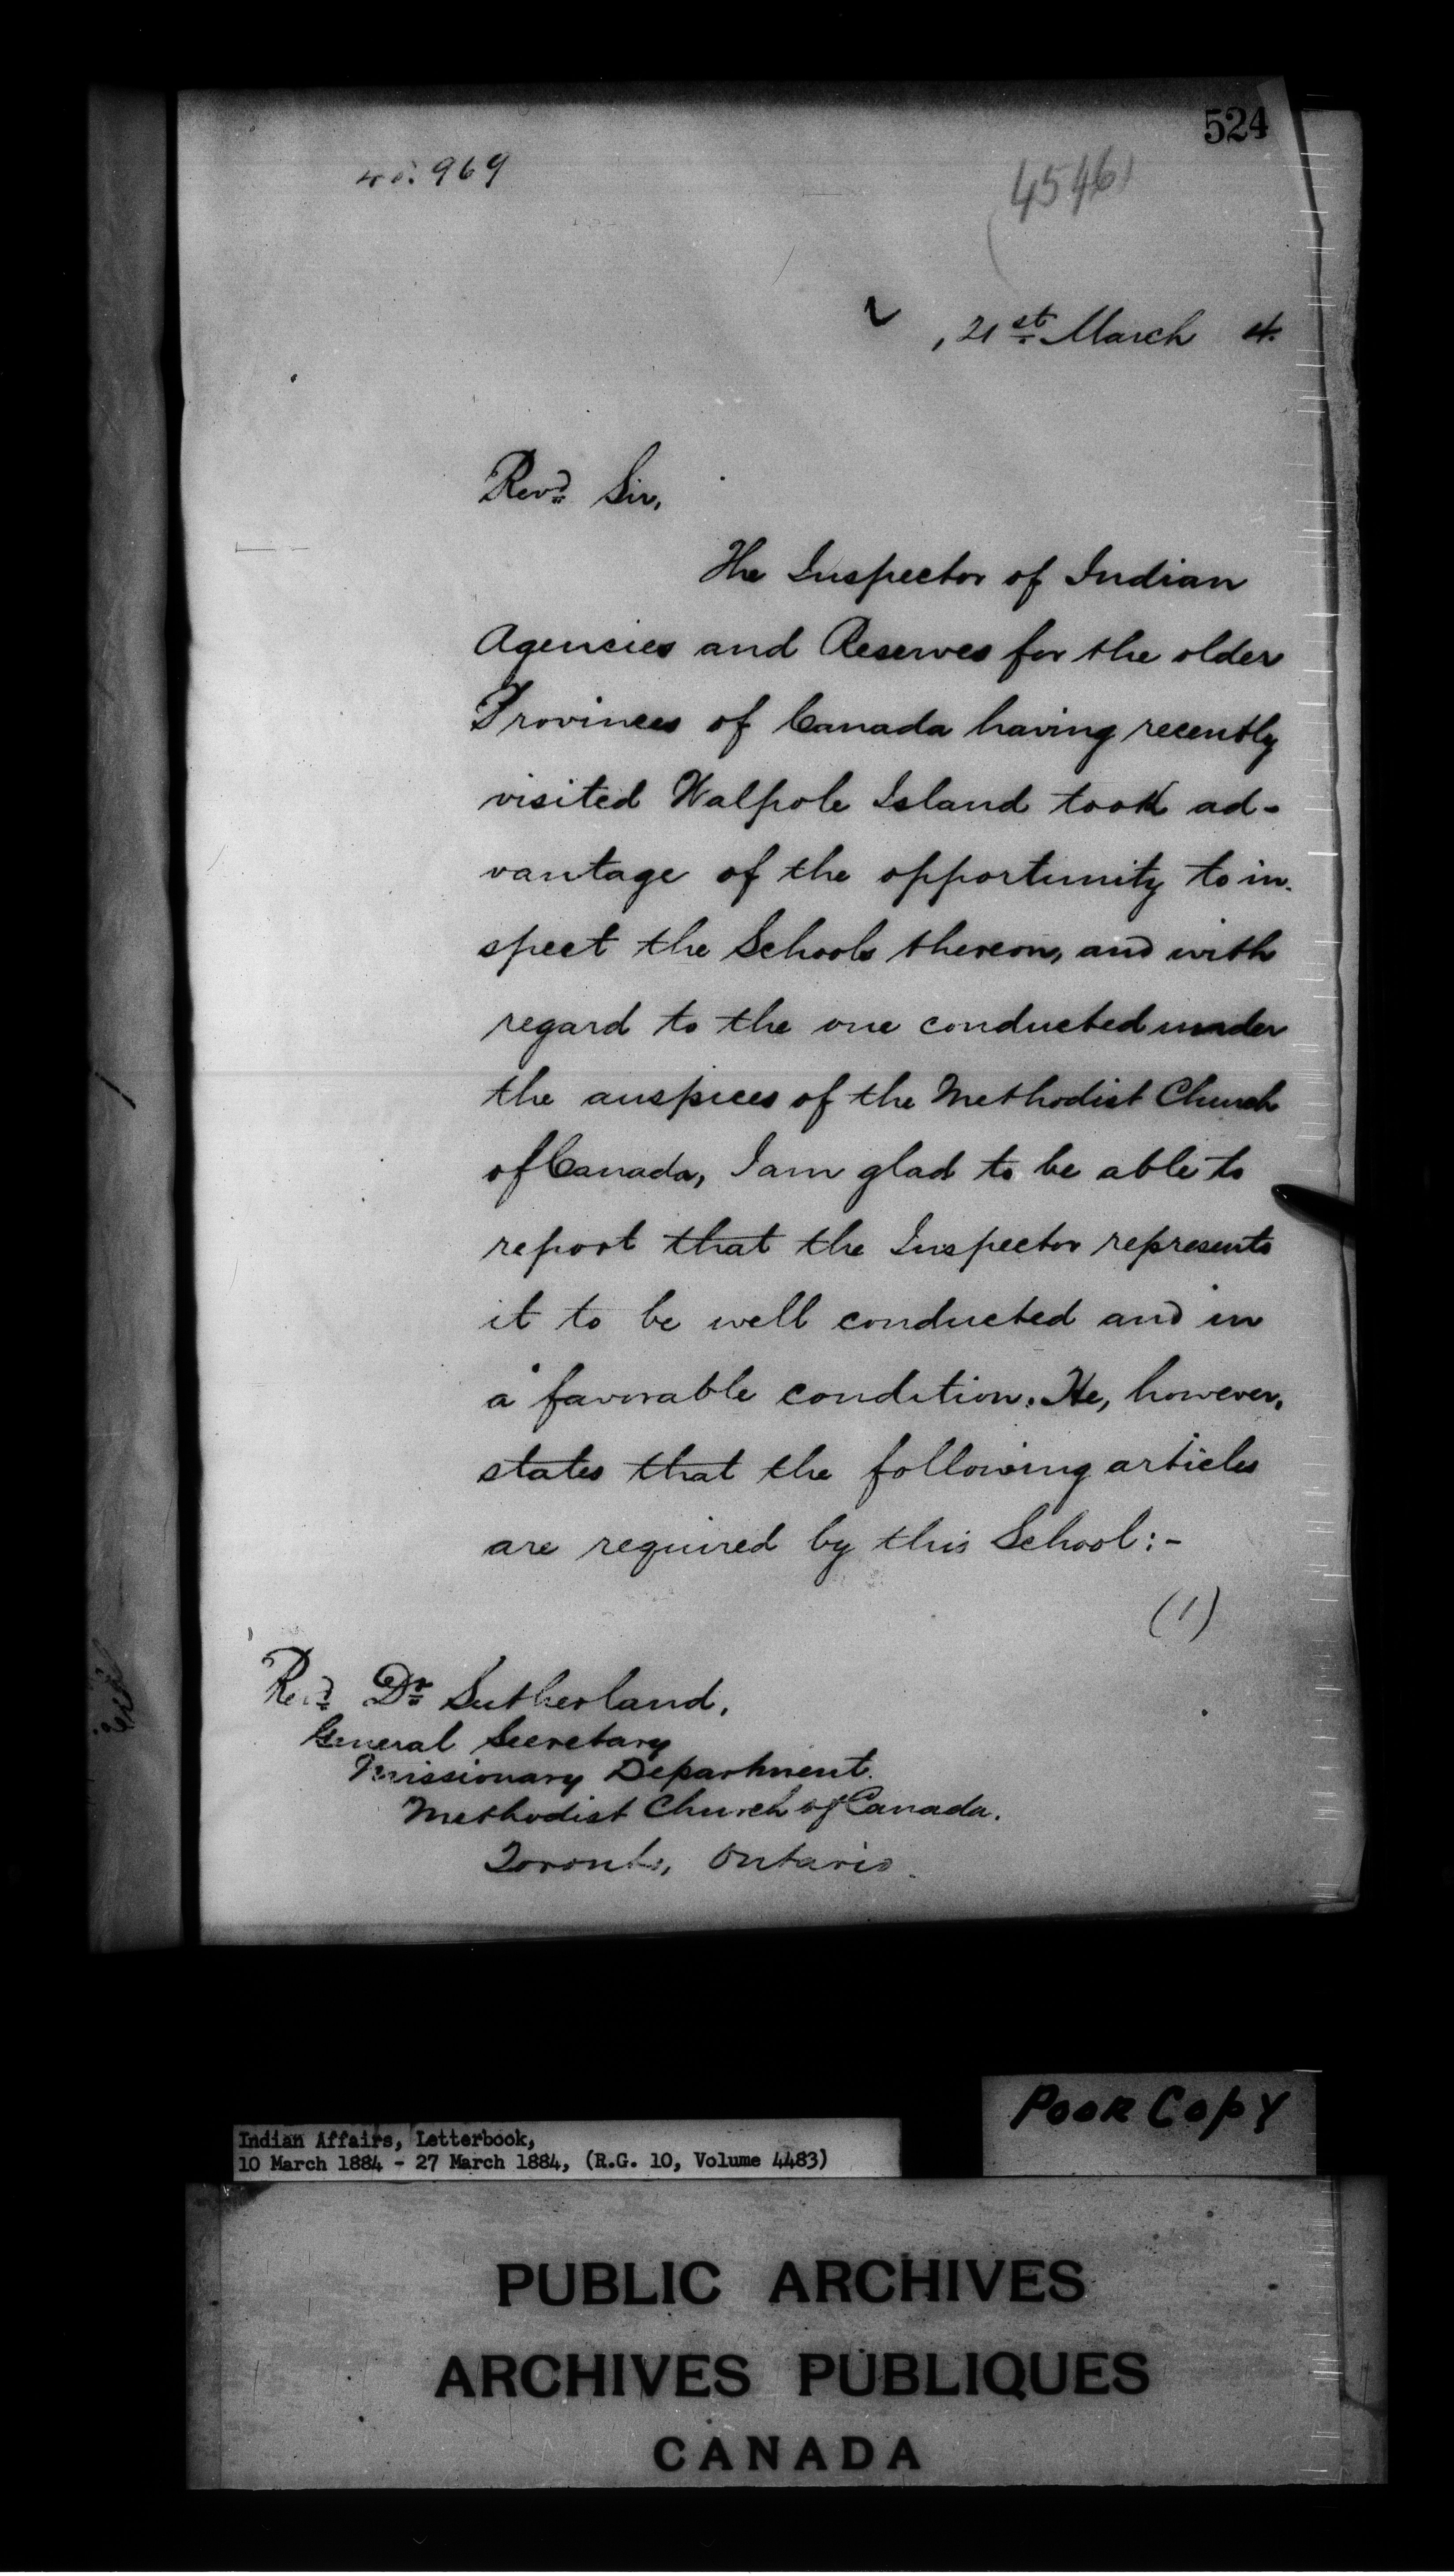 524
969
4546
, 21st March 4.
Revd. Sir,
The Inspector of Indian
Agencies and Reserves for the older
Provinces of Canada having recently
visited Walpole Island took ad-
vantage of the opportunity to in-
spect the Schools thereon, and with
regard to the one conducted under
the auspices of the Methodist Church
of Canada, I am glad to be able to
report that the Inspector represents
it to be well conducted and in
a favorable condition. He, however,
states that the following articles
are required by this School:-
(1)
Revd. Dr. Sutherland,
General Secretary
Missionary Department.
Methodist Church of Canada.
Toronto, Ontario.
Poor Copy
Indian Affairs, Letterbook,
10 March 1884 - 27 March 1884, (R.G. 10, Volume 4483)
PUBLIC ARCHIVES
ARCHIVES PUBLIQUES
CANADA